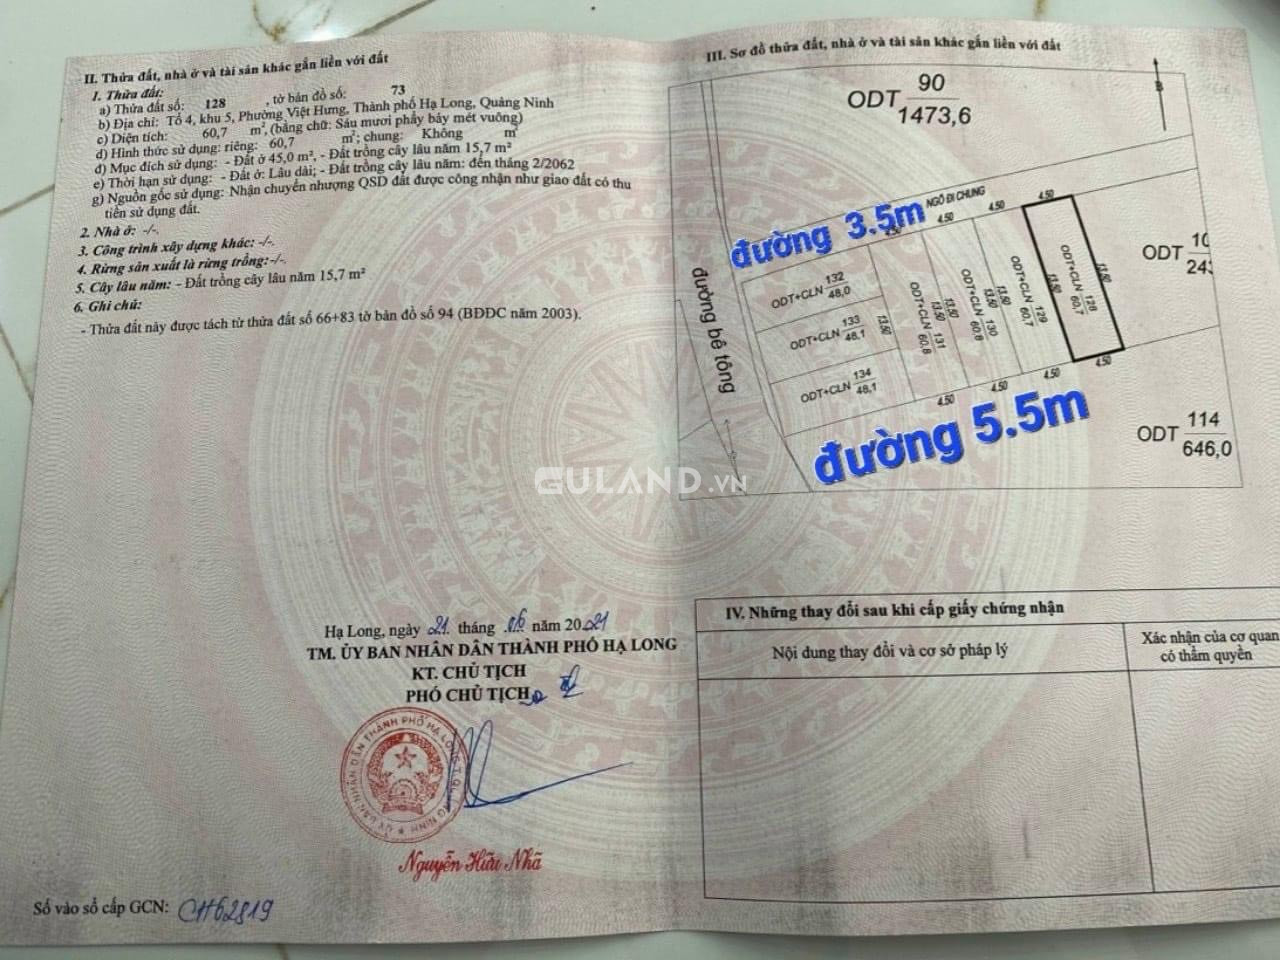 II. Thửa đất, nhà ở và tài sản khác gắn liền với đất
1. Thửa đất:
a) Thửa đất số: 128 , tờ bản đồ số: 73
b) Địa chỉ: Tổ 4, khu 5, Phường Việt Hưng, Thành phố Hạ Long, Quảng Ninh
c) Diện tích: 60,7 m², (bằng chữ: Sáu mươi phẩy bảy mét vuông)
d) Hình thức sử dụng: riêng: 60,7 m²; chung: Không m²
đ) Mục đích sử dụng: - Đất ở 45,0 m², - Đất trồng cây lâu năm 15,7 m²
e) Thời hạn sử dụng: - Đất ở: Lâu dài; - Đất trồng cây lâu năm: đến tháng 2/2062
g) Nguồn gốc sử dụng: Nhận chuyển nhượng QSD đất được công nhận như giao đất có thu
tiền sử dụng đất.
2. Nhà ở: -/-.
3. Công trình xây dựng khác: -/-.
4. Rừng sản xuất là rừng trồng:-/-.
5. Cây lâu năm: - Đất trồng cây lâu năm 15,7 m²
6. Ghi chú:
- Thửa đất này được tách từ thửa đất số 66+83 tờ bản đồ số 94 (BĐĐC năm 2003).
Hạ Long, ngày 21 tháng 06 năm 2021
TM. ỦY BAN NHÂN DÂN THÀNH PHỐ HẠ LONG
KT. CHỦ TỊCH
PHÓ CHỦ TỊCH
ỦY BAN NHÂN DÂN THÀNH PHỐ HẠ LONG T.QUẢNG NINH
Nguyễn Hữu Nhã
Số vào sổ cấp GCN: CH62819
III. Sơ đồ thửa đất, nhà ở và tài sản khác gắn liền với đất
B
ODT 90
1473,6
NGÕ ĐI CHUNG
đường 3.5m
4.50
4.50
4.50
4.50
đường bê tông
ODT+CLN 132
48,0
ODT+CLN 133
48,1
ODT+CLN 134
48,1
13,50
ODT+CLN 131
60,8
13,50
ODT+CLN 130
60,8
13,50
ODT+CLN 129
60,7
13,50
ODT+CLN 128
60,7
13,50
4.50
4.50
4.50
4.50
ODT 10
243
đường 5.5m
ODT 114
646,0
GULAND.VN
IV. Những thay đổi sau khi cấp giấy chứng nhận
Nội dung thay đổi và cơ sở pháp lý
Xác nhận của cơ quan
có thẩm quyền